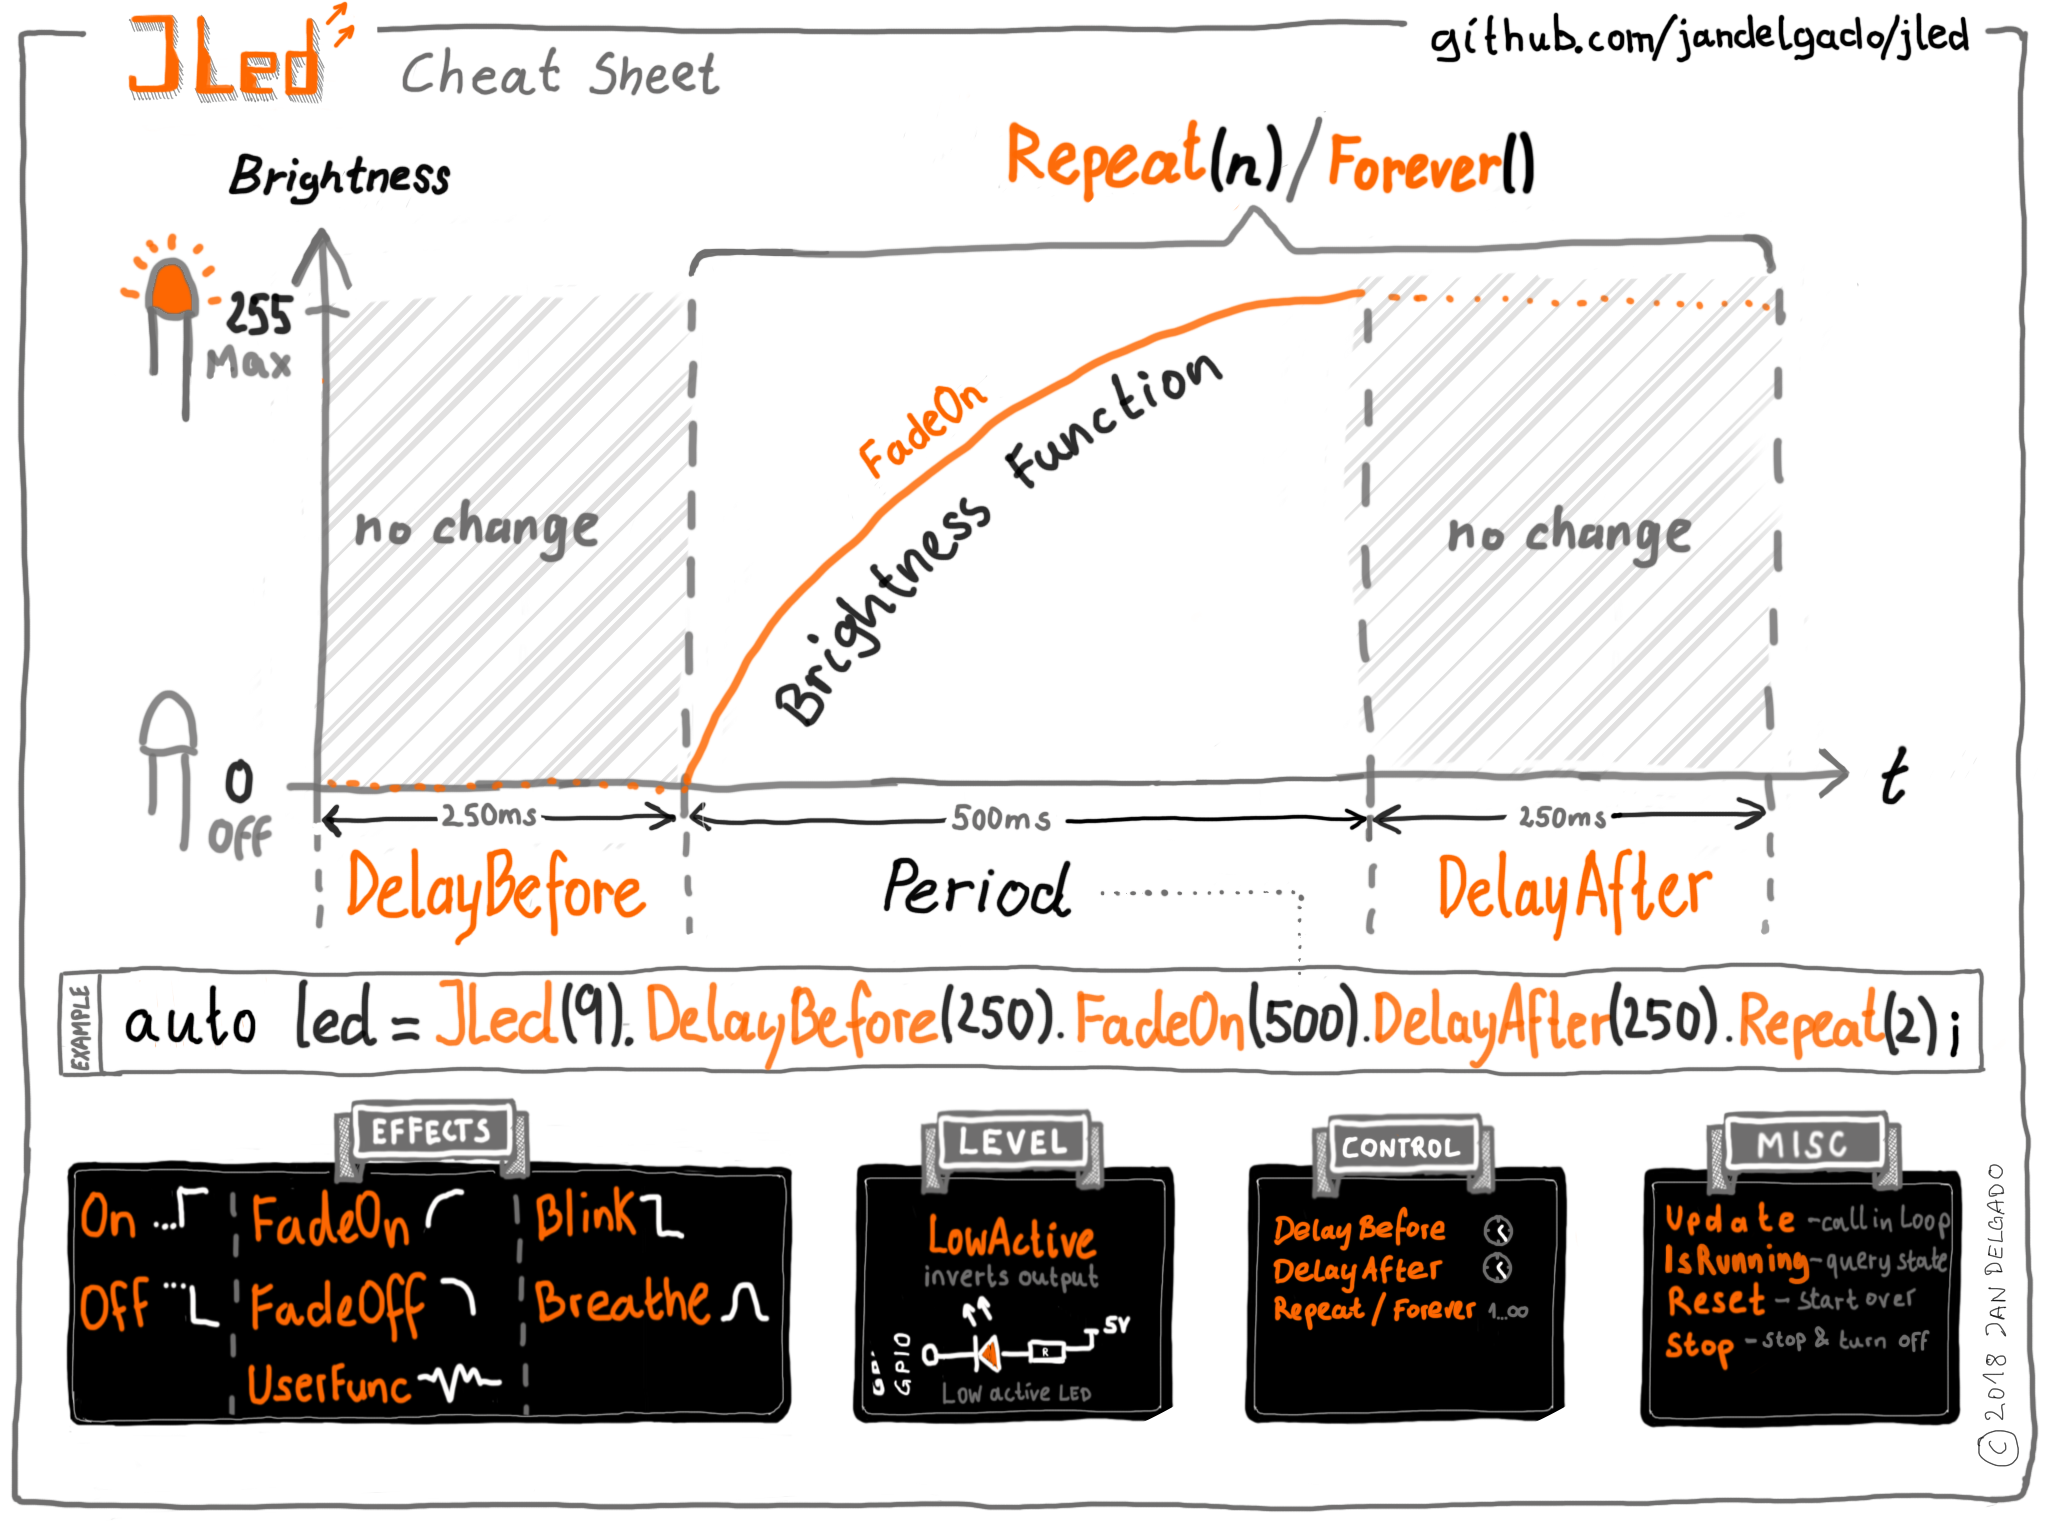 JLed
Cheat Sheet
github.com/jandelgado/jled
Repeat(n)/Forever()
Brightness
255
Max
FadeOn
Brightness Function
no change
no change
0
Off
t
250ms
500ms
250ms
DelayBefore
Period
DelayAfter
EXAMPLE
auto led = JLed(9).DelayBefore(250).FadeOn(500).DelayAfter(250).Repeat(2);
EFFECTS
On
FadeOn
Blink
Off
FadeOff
Breathe
UserFunc
LEVEL
LowActive
inverts output
5V
R
GPIO
Low active LED
CONTROL
DelayBefore
DelayAfter
Repeat / Forever 1...∞
MISC
Update - call in Loop
IsRunning - query state
Reset - start over
Stop - stop & turn off
© 2018 JAN DELGADO